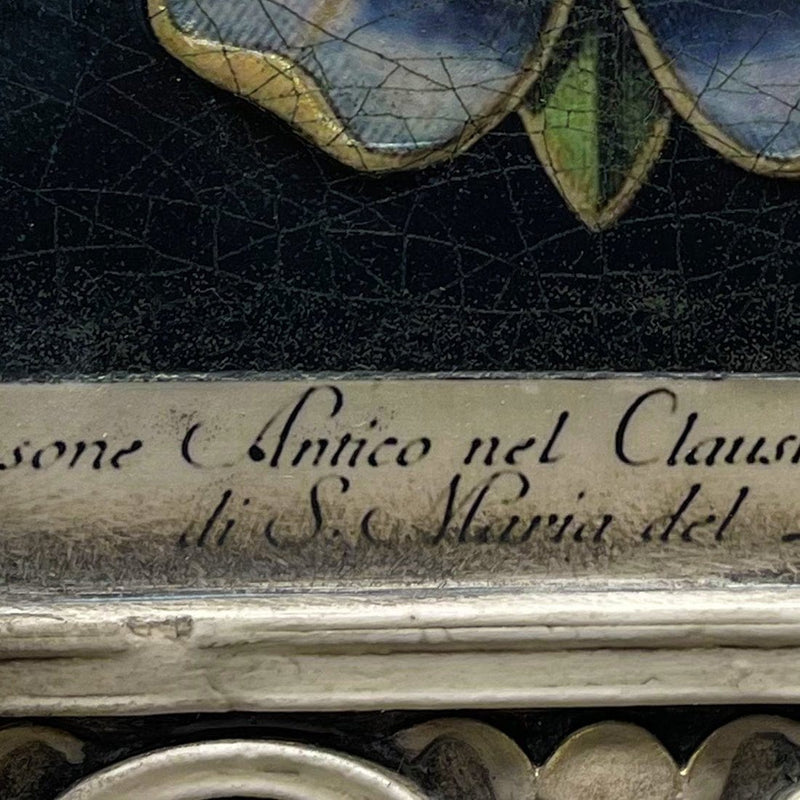 sone Antico nel Claus
di S. Maria del